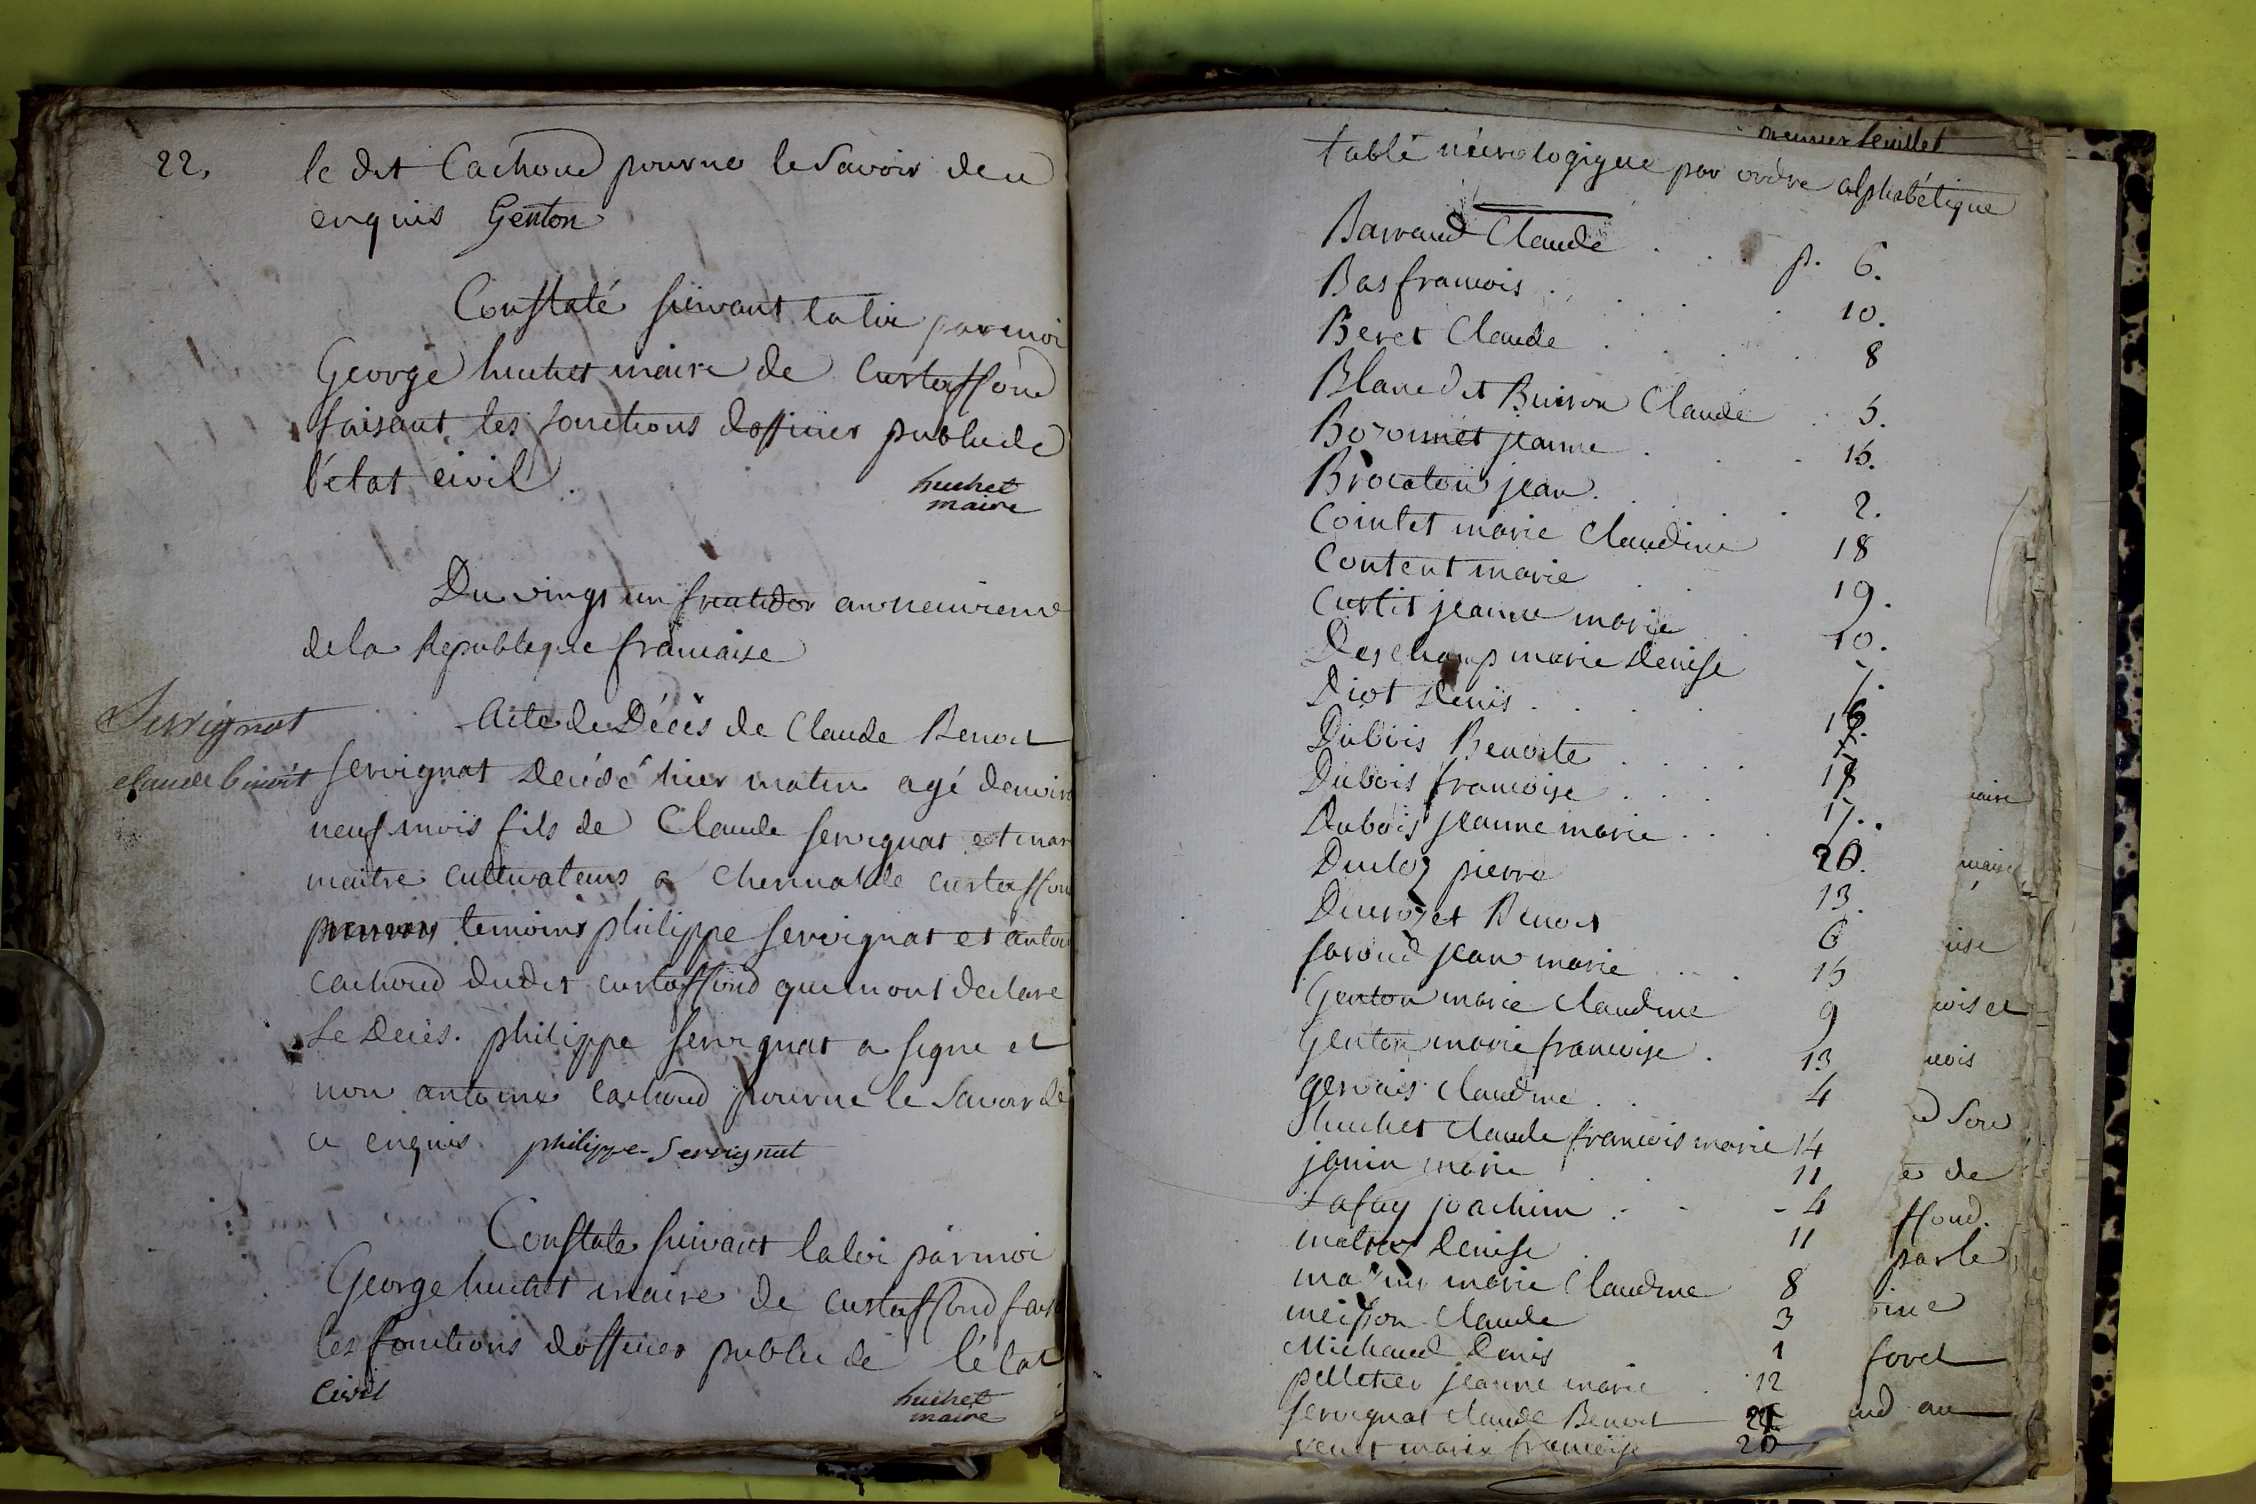 22.
le dit Cachoud pour ne le savoir de ce
enquis Genton
Constaté suivant la loi par moi
George huchet maire de Curtaffond
faisant les fonctions dofficier public de
l'état civil.
huchet
maire
Du vingt un fructidor an neuvieme
de la Republique francaise
Servignat
claude benoit
Acte de Décès de Claude Benoit
servignat décédé hier matin agé denviron
neuf mois fils de Claude servignat et mar
maitre cultivateurs a Curtaffon
temoins philippe servignat et antoi
cachoud dudit curtaffond qui mont declare
le Décès. philippe servignat a signe et
non antoine cachoud pour ne le savoir de
ce enquis. philippe Servignat
Constaté suivant la loi par moi
George huchet maire de curtaffond fais
les fonctions dofficier public de l'état
Civil
huchet
maire
premier feuillet
table nécrologique par ordre alphabétique
Barraud Claude . . . p. 6.
Bas francois . . . . 10.
Beret Claude . . . . 8
Blanc dit Buiron Claude . 5.
jeanne . . . 15.
Brocaton jean . . . . 2.
Cointet marie Claudine 18
Content marie . . 19.
Curtit jeanne marie . 10.
Deschamp marie denise 7.
Diot denis . . . .
Dubois Benoite . . . .
Dubois francoise . . . 18
Dubois jeanne marie . . 17.
Ducloz pierre 20.
Ducrozet Benoit 13.
faroud jean marie . . . 6
Genton marie Claudine 15
Genton marie francoise . 9
gervais Claudine . . 13
huchet claude francois marie 14
janin marie . . 11
Lafay joachim . - - 4
denise . 11
marie Claudine 8
meisson Claude 3
Michaud Denis 1
pelletier jeanne marie . 12
servignat claude Benoit 21
marie francoise 20
maire
maire
nise
cois et
cois
d son
e de
ffond.
par le
ine
foret
nd au